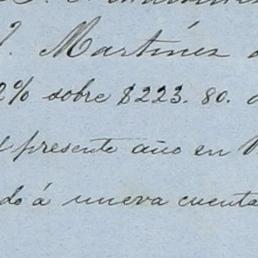 J. Martínez
% sobre $223.80.
presente año en
do á nueva cuenta